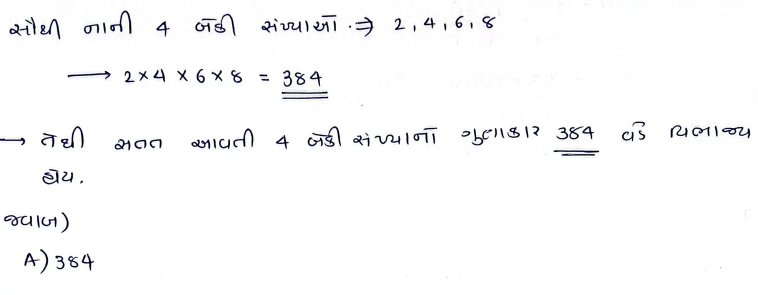 સૌથી નાની 4 બેકી સંખ્યાઓ ⇒ 2, 4, 6, 8
→ 2 × 4 × 6 × 8 = 384
→ તેથી સતત આવતી 4 બેકી સંખ્યાનો ગુણાકાર 384 વડે વિભાજ્ય
હોય.
જવાબ)
A) 384